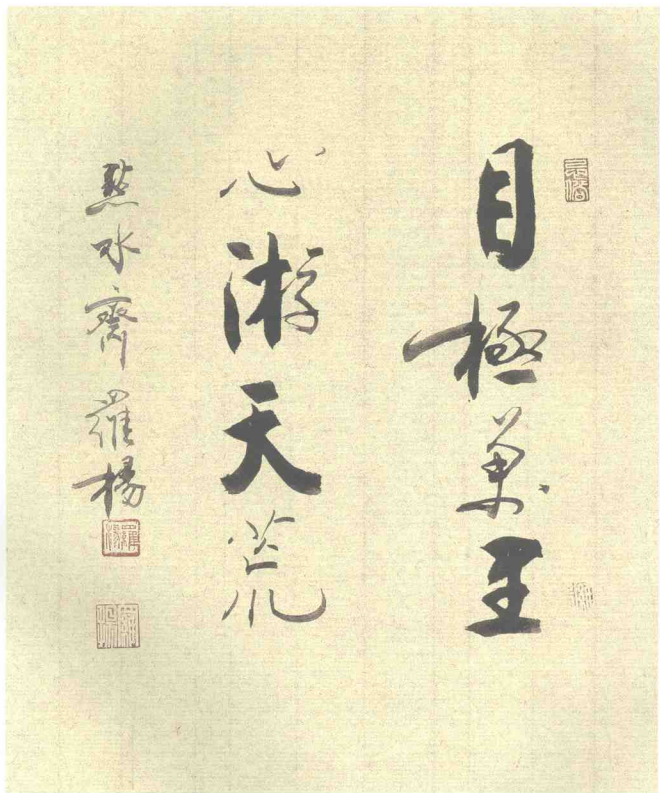 目極萬里
心游天荒
點水齋羅楊